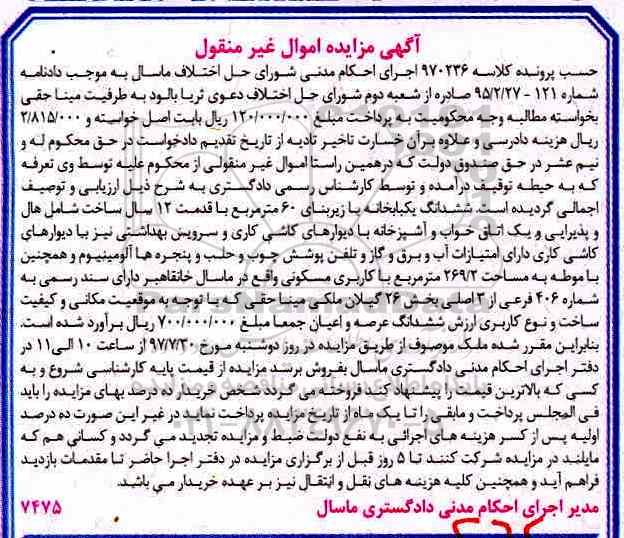 آگهی مزایده اموال غیر منقول
حسب پرونده کلاسه ۹۷۰۲۳۶ اجرای احکام مدنی شورای حل اختلاف ماسال به موجب دادنامه
شماره ۱۲۱ - ۹۵/۲/۲۷ صادره از شعبه دوم شورای حل اختلاف دعوی ثریا بالود به طرفیت مینا حقی
بخواسته مطالبه وجه محکومیت به پرداخت مبلغ ۱۲۰/۰۰۰/۰۰۰ ریال بابت اصل خواسته و ۲/۸۱۵/۰۰۰
ریال هزینه دادرسی و علاوه بر آن خسارت تاخیر تادیه از تاریخ تقدیم دادخواست در حق محکوم له و
نیم عشر در حق صندوق دولت که درهمین راستا اموال غیر منقولی از محکوم علیه توسط وی تعرفه
که به حیطه توقیف درآمده و توسط کارشناس رسمی دادگستری به شرح ذیل ارزیابی و توصیف
اجمالی گردیده است ششدانگ یکبابخانه با زیربنای ۶۰ مترمربع با قدمت ۱۲ سال ساخت شامل هال
و پذیرایی و یک اتاق خواب و آشپزخانه با دیوارهای کاشی کاری و سرویس بهداشتی نیز با دیوارهای
کاشی کاری دارای امتیازات آب و برق و گاز و تلفن پوشش چوب و حلب و پنجره ها آلومینیوم و همچنین
با موطه به مساحت ۲۶۹/۲ مترمربع با کاربری مسکونی واقع در ماسال خانقاهبر دارای سند رسمی به
شماره ۴۰۶ فرعی از ۳ اصلی بخش ۲۶ گیلان ملکی مینا حقی که با توجه به موقعیت مکانی و کیفیت
ساخت و نوع کاربری ارزش ششدانگ عرصه و اعیان جمعا مبلغ ۷۰۰/۰۰۰/۰۰۰ ریال برآورد شده است.
بنابراین مقرر شده ملک موصوف از طریق مزایده در روز دوشنبه مورخ ۹۷/۷/۳۰ از ساعت ۱۰ الی ۱۱ در
دفتر اجرای احکام مدنی دادگستری ماسال بفروش برسد مزایده از قیمت پایه کارشناسی شروع و به
کسی که بالاترین قیمت را پیشنهاد کند فروخته می گردد شخص خریدار ده درصد بهای مزایده را باید
فی المجلس پرداخت و مابقی را تا یک ماه از تاریخ مزایده پرداخت نماید در غیر این صورت ده درصد
اولیه پس از کسر هزینه های اجرائی به نفع دولت ضبط و مزایده تجدید می گردد و کسانی هم که
مایلند در مزایده شرکت کنند تا ۵ روز قبل از برگزاری مزایده در دفتر اجرا حاضر تا مقدمات بازدید
فراهم آید و همچنین کلیه هزینه های نقل و انتقال نیز بر عهده خریدار می باشد.
مدیر اجرای احکام مدنی دادگستری ماسال ۷۴۷۵